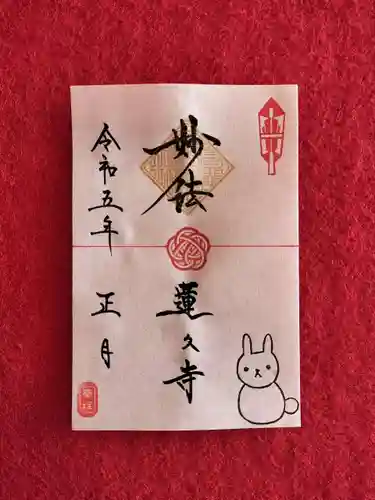 妙法
蓮久寺
令和五年
正月